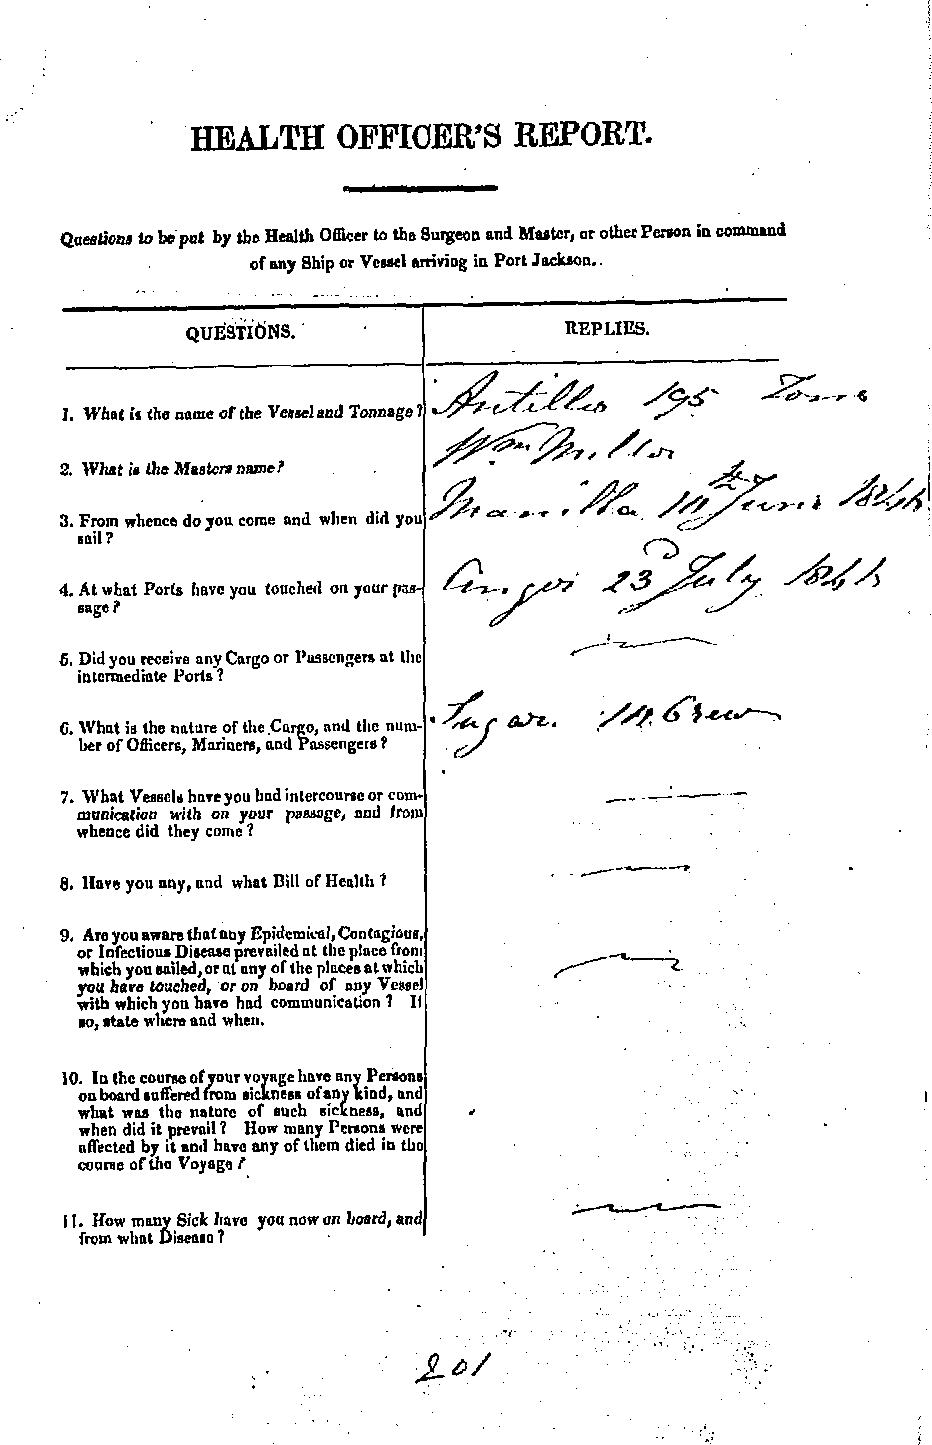 HEALTH OFFICER'S REPORT.
Questions to be put by the Health Officer to the Surgeon and Master, or other Person in command
of any Ship or Vessel arriving in Port Jackson.
QUESTIONS.
REPLIES.
1. What is the name of the Vessel and Tonnage?
Antilles 195 Tons
2. What is the Masters name?
Wm Miller
3. From whence do you come and when did you
sail?
Manilla 14th June 1844
4. At what Ports have you touched on your pas-
sage?
Anger 23d July 1844
5. Did you receive any Cargo or Passengers at the
intermediate Ports?
—
6. What is the nature of the Cargo, and the num-
ber of Officers, Mariners, and Passengers?
Sugar. 14 Crew
7. What Vessels have you had intercourse or com-
munication with on your passage, and from
whence did they come?
—
8. Have you any, and what Bill of Health?
—
9. Are you aware that any Epidemical, Contagious,
or Infectious Disease prevailed at the place from
which you sailed, or at any of the places at which
you have touched, or on board of any Vessel
with which you have had communication? If
so, state where and when.
—
10. In the course of your voyage have any Persons
on board suffered from sickness of any kind, and
what was the nature of such sickness, and
when did it prevail? How many Persons were
affected by it and have any of them died in the
course of the Voyage?
11. How many Sick have you now on board, and
from what Disease?
—
201